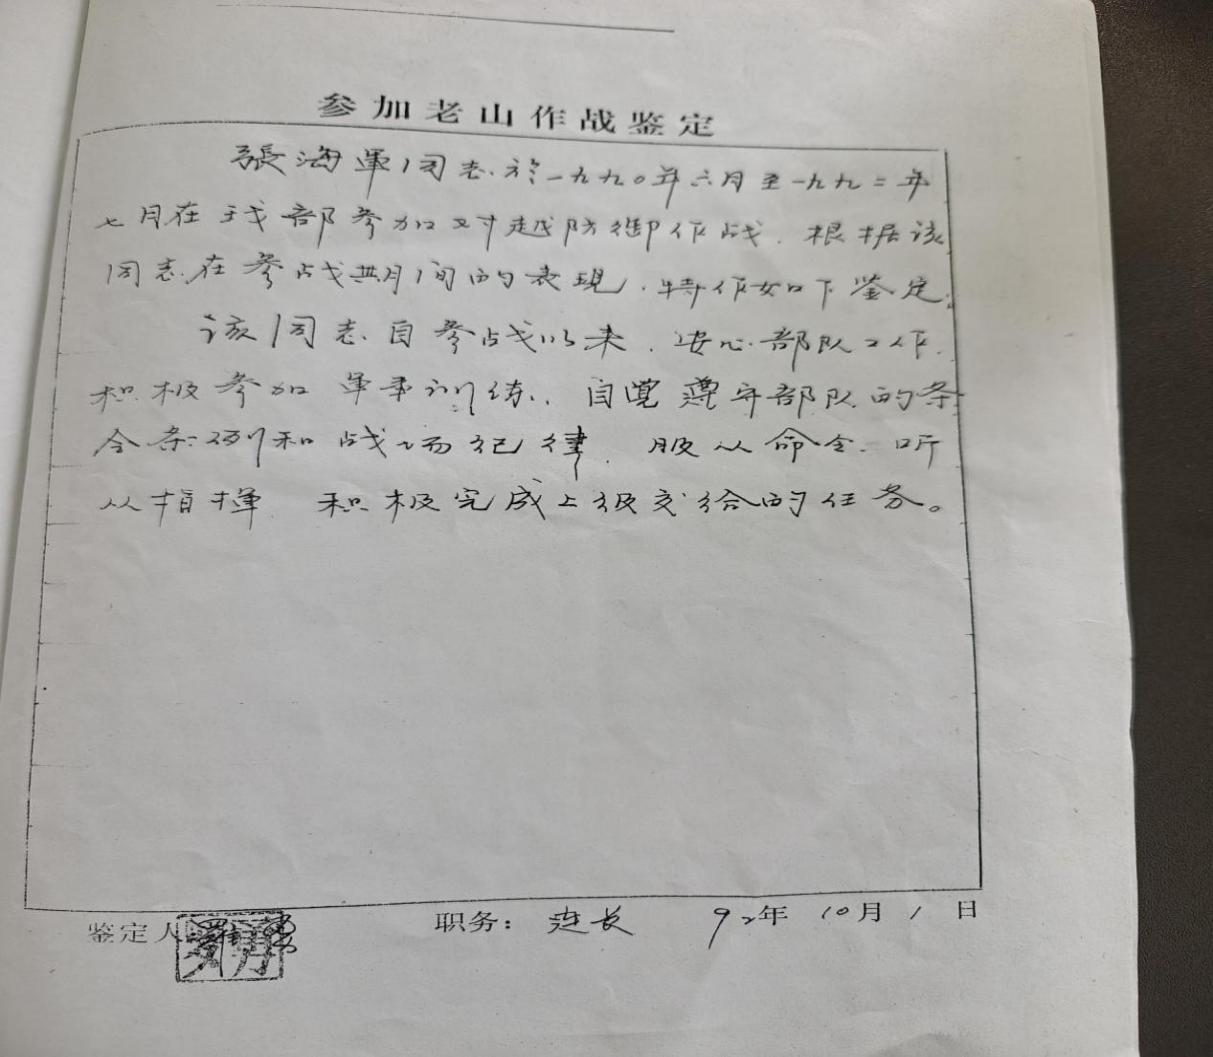 参加老山作战鉴定
張海軍同志於一九九〇年六月至一九九二年
七月在我部参加对越防御作战．根据该
同志在参战期间的表現．特作如下鉴定：
该同志自参战以来．安心部队工作．
积极参加軍事训练．自覚遵守部队的条
令条例和战场纪律．服从命令．听
从指揮 积极完成上级交给的任务。
鉴定人 职务：连长 92年10月1日